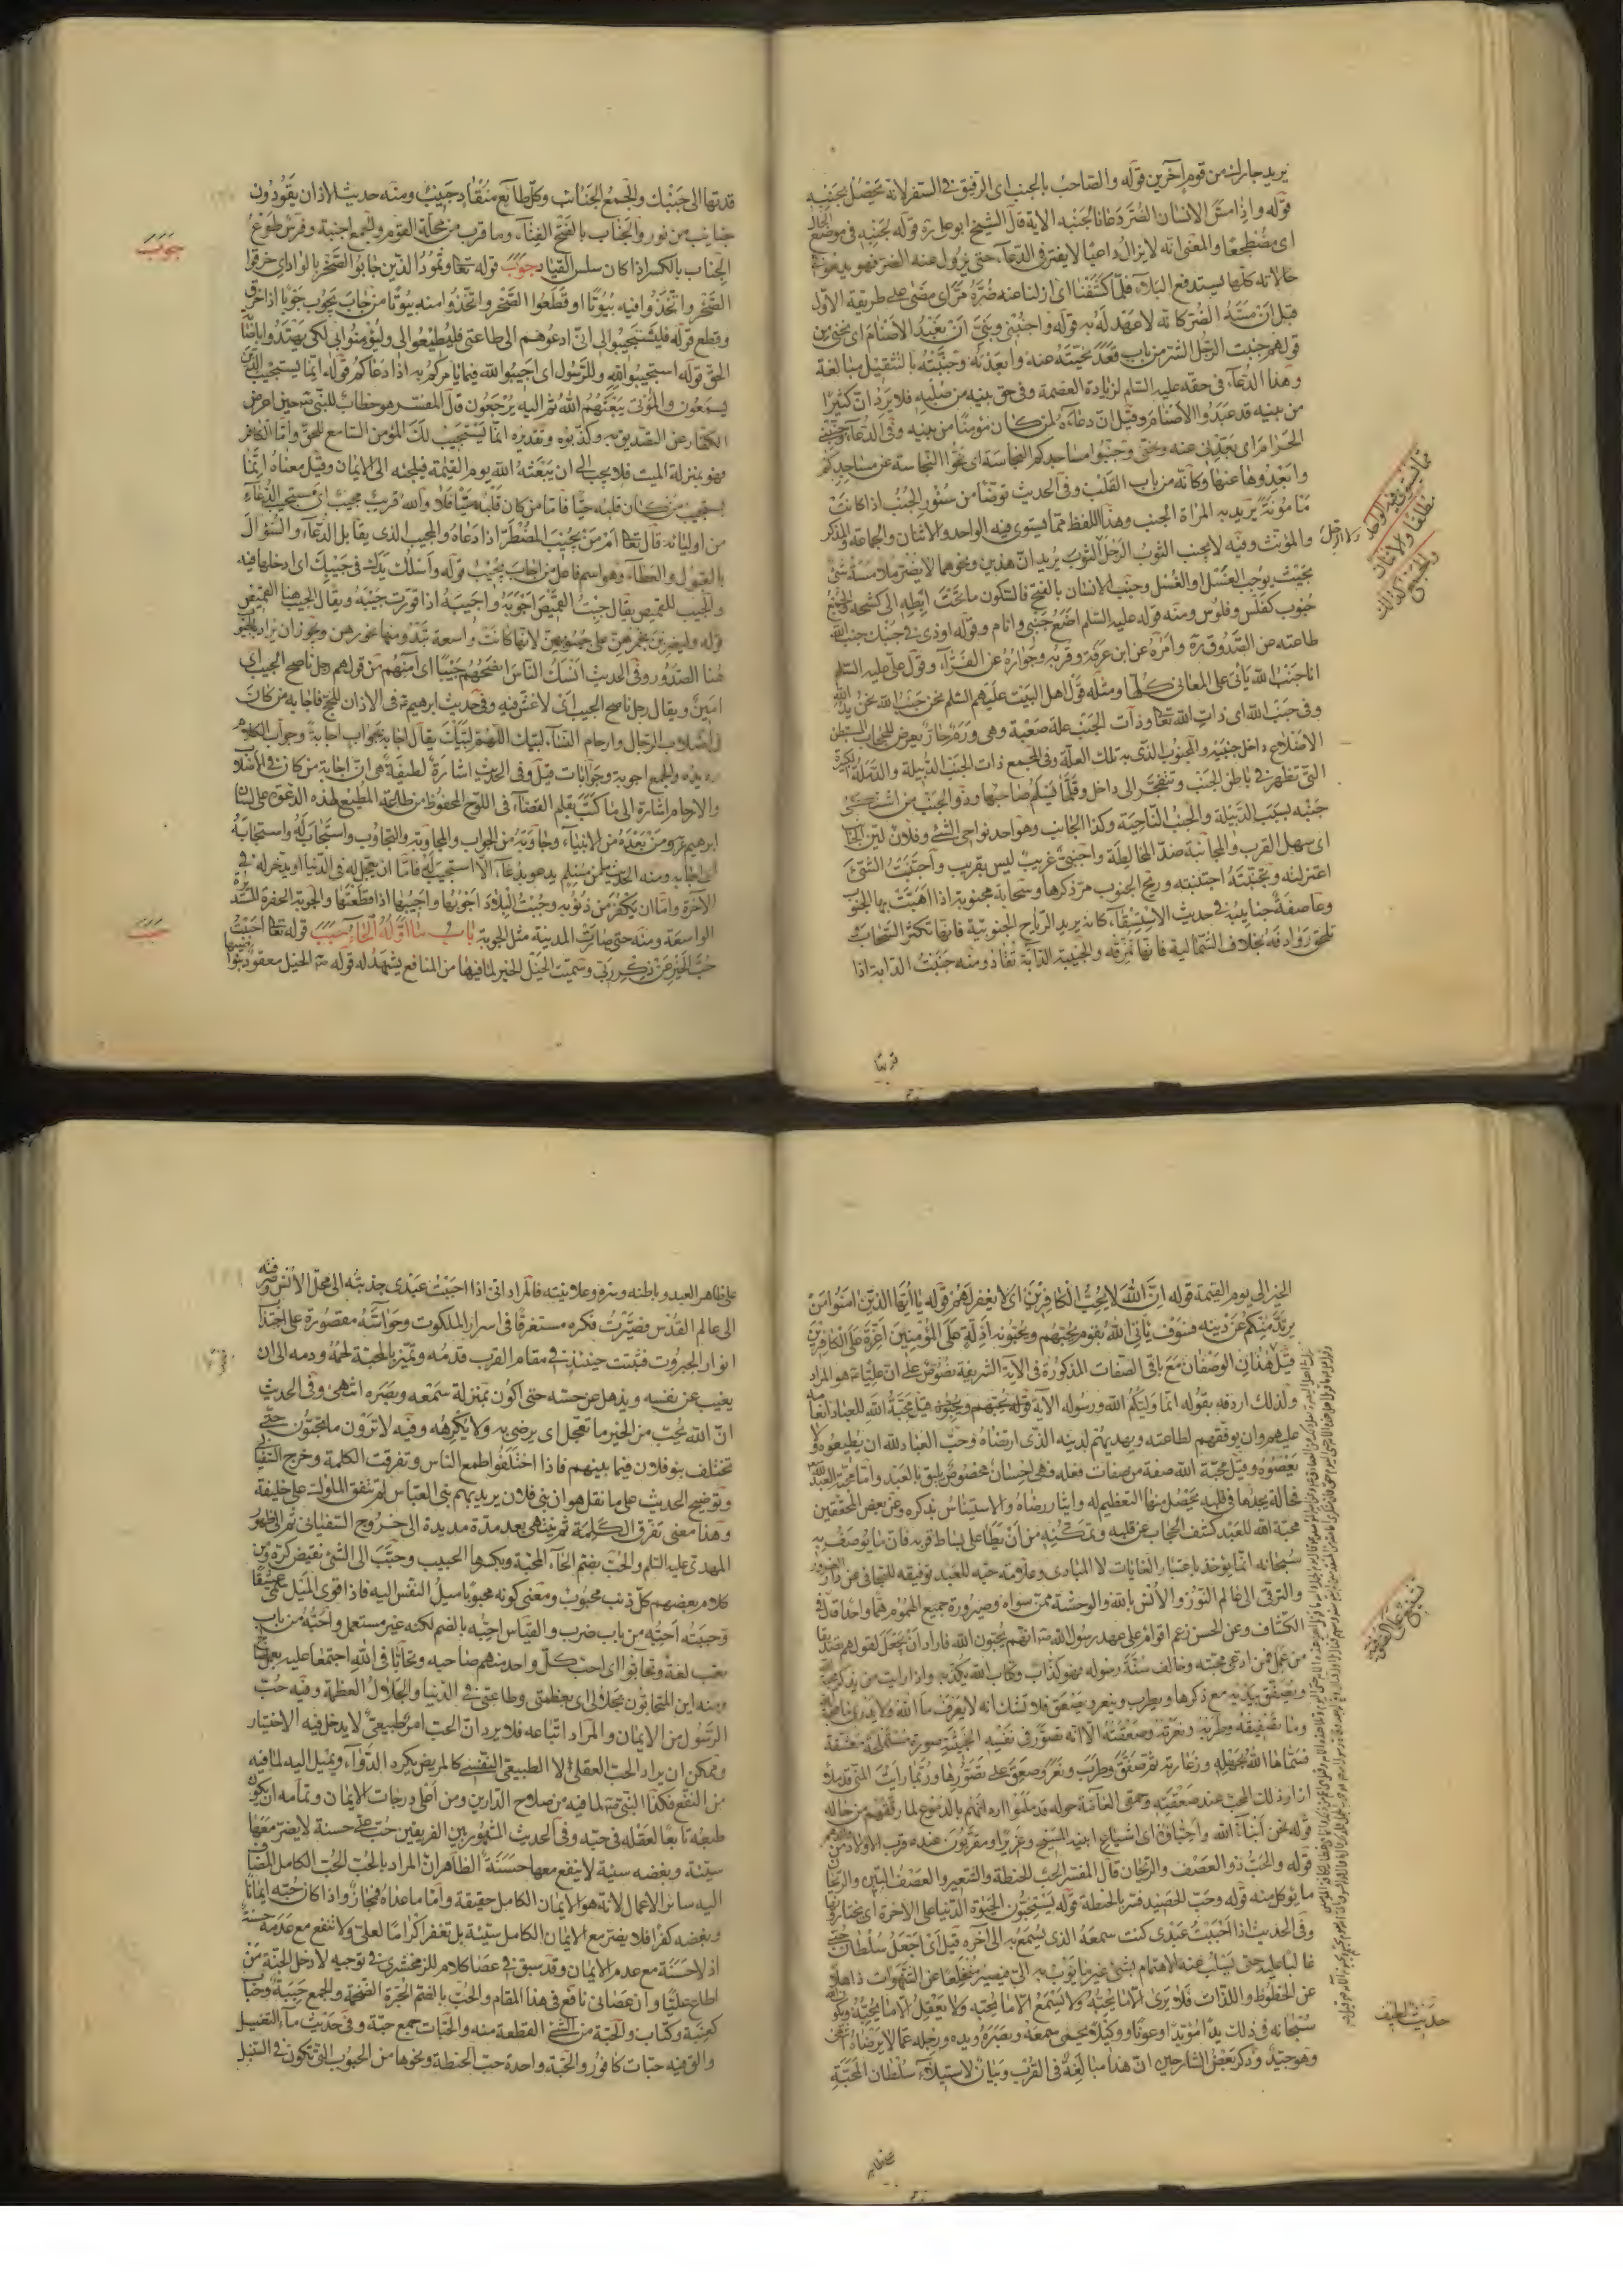 يريد جارك من قوم آخرين قوله والصاحب بالجنب اى الرفيق فى السفر لانه يحصل بجنبه
قوله واذا مسّ الانسان الضرّ دعانا لجنبه الاية قال الشيخ ابوعلى ره قوله لجنبه فى موضع الحال
اى مضطجعا والمعنى انه لا يزال داعيا لا يفتر فى الدعاء حتى يزول عنه الضر فهو يدعو فى
حالاته كلها ليستدفع البلاء فلما كشفنا اى ازلنا عنه ضره مرّ اى مضى على طريقة الاول
قبل ان مسّه الضر كانه لا عهد له به قوله واجنبنى وبنىّ ان نعبد الاصنام اى نجنى من
قولهم جنبت الرجل الشر من باب قعد نحيته عنه وابعدته وجنّبته بالتثقيل مبالغة
وهذا الدعاء فى حقه عليه السلم لزيادة العصمة وفى حق بنيه من صلبه فلا يرد ان كثيرا
من بنيه قد عبدوا الاصنام وقيل ان دعاءه لمن كان مؤمنا من بنيه وفى الدعاء وجنّبنى
الحرام اى بعّدنى عنه ونحنى وجنّبوا مساجدكم النجاسة اى نحّوا النجاسة عن مساجدكم
وابعدوها عنها وكانه من باب القلب وفى الحديث توضأ من سؤر الجنب اذا كانت
مامونة يريد به المرأة الجنب وهذا اللفظ مما يستوى فيه الواحد والاثنان والجماعة والمذكر
والمؤنث وفيه لا يجنب الثوب الرجل الثوب يريد ان هذين ونحوهما لا يضير ملامسة شئ
بحيث يوجب الغسل او الغسل وجنب الانسان بالفتح فالسكون ما تحت ابطه الى كشحه والجمع
جنوب كفلس وفلوس ومنه قوله عليه السلم اضع جنبى وانام وقوله اوذى فى جنبك جنب الله
طاعته عن الصدوق ره وامره عن ابن عرفة وقربه وجواره عن الفراء وقول على عليه السلم
انا جنب الله يأتى على المعانى كلها ومثله قول اهل البيت عليهم السلم نحن جنب الله نحن يد الله
وفى جنب الله اى ذات الله تعالى وذات الجنب علة صعبة وهى ورم حار يعرض للحجاب المستبطن
الاضلاع داخل جنبيه والمجنوب الذى به تلك العلة وفى المجمع ذات الجنب الدبيلة والدملة الكبيرة
التى تظهر فى باطن الجنب وتنفجر الى داخل وقلّما يسلم صاحبها وذو الجنب من اشتكى
جنبه بسبب الدبيلة والجنب الناحية وكذا الجانب وهو احد نواحى الشئ وفلان لين الجانب
اى سهل القرب والمجانبة ضد المخالطة واجنبى غريب ليس بقريب واجتنبت الشئ
اعتزلته وتجنبته اجتنبته وريح الجنوب مر ذكرها وسحابة مجنوبة اذا هبّت بها الجنوب
وعاصفة جنايبه فى حديث الاستسقاء كانه يريد الرياح الجنوبية فانها تكثر السحاب و
تلحق روادفه بخلاف الشمالية فانها تمزقه والجنيبة الدابة تقاد ومنه جنبت الدابة اذا
قدتها الى جنبك والجمع الجنائب وكل طائع منقاد جنيب ومنه حديث الاذان يقودون
جنايب من نور والجناب بالفتح الفناء وما قرب من محلة القوم والجمع اجنبة وفرس طوع
الجناب بالكسر اذا كان سلس القياد جوب قوله تعالى وثمود الذين جابوا الصخر بالواد اى خرقوا
الصخر واتخذوا فيه بيوتا او قطعوا الصخر واتخذوا منه بيوتا من جاب يجوب جوبا اذا خرق
وقطع قوله فليستجيبوا لى اى ادعوهم الى طاعتى فليطيعوا لى وليؤمنوا بى لكى يهتدوا باصابة
الحق قوله استجيبوا لله وللرسول اى اجيبوا الله فيما يامركم به اذا دعاكم قوله انما يستجيب الذين
يسمعون والموتى يبعثهم الله ثم اليه يرجعون قال المفسر هو خطاب للنبى ص حين اعرض
الكفار عن التصديق به وكذبوه وتقديره انما يستجيب لك المؤمن السامع للحق واما الكافر
فهو بمنزلة الميت فلا يجيب الى ان يبعثه الله يوم القيمة فيلجئه الى الايمان وقيل معناه انما
يستجيب من كان قلبه حيّا فاما من كان قلبه ميّتا فلا والله قريب مجيب اى مستجيب الدعاء
من اوليائه قال تعالى امّن يجيب المضطر اذا دعاه والمجيب الذى يقابل الدعاء والسؤال
بالقبول والعطاء وهو اسم فاعل من اجاب يجيب قوله واسلك يدك فى جيبك اى ادخلها فيه
والجيب للقميص يقال جبت القميص اجوبه واجيبه اذا قورت جيبه ويقال الجيب هنا القميص
قوله وليضربن بخمرهن على جيوبهن لانها كانت واسعة تبدو منها نحورهن ويجوز ان يراد بالجيوب
هنا الصدور وفى الحديث انسك الناس انصحهم جيبا اى آمنهم من قولهم رجل ناصح الجيب اى
امين ويقال رجل ناصح الجيب اى لا غش فيه وفى حديث ابرهيم ع فى الاذان للحج فاجابه من كان
فى اصلاب الرجال وارحام النساء لبيك اللهم لبيك يقال اجابه بجواب اجابة وجواب الكلام
رديده والجمع اجوبة وجوابات قيل وفى الحديث اشارة لطيفة هى ان اجابة من كان فى الاصلاب
والارحام اشارة الى ما كتب بقلم القضاء فى اللوح المحفوظ من طاعة المطيع لهذه الدعوة على لسان
ابرهيم ع ومن بعده من الانبياء وجاوبته من الجواب والمجاوبة والتجاوب واستجاب له واستجابه
اى اجابه ومنه الحديث ما من مسلم يدعو بدعاء الا استجيب له فاما ان يعجل له فى الدنيا او يدخر له فى
الآخرة واما ان يكفر من ذنوبه وجبت البلاد اجوبها واجيبها اذا قطعتها والجوبة الحفرة المستديرة
الواسعة ومنه حتى صارت المدينة مثل الجوبة باب ما اوله الحاء حبب قوله تعالى احببت
حب الخير عن ذكر ربى وسميت الخيل الخير لما فيها من المنافع يشهد له قوله ص الخيل معقود بنواصيها
جوب
حبب
مما يستوى فيه الواحد
مطلقا والاثنان
والجمع كذلك
الخير الى يوم القيمة قوله ان الله لا يحب الكافرين اى لا يغفر لهم قوله يا ايها الذين امنوا من
يرتد منكم عن دينه فسوف يأتى الله بقوم يحبهم ويحبونه اذلة على المؤمنين اعزة على الكافرين
قيل هذان الوصفان مع باقى الصفات المذكورة فى الآية الشريفة نصوص على ان عليا ع هو المراد
ولذلك اردفه بقوله انما وليكم الله ورسوله الآية قوله يحبهم ويحبونه قيل محبة الله للعباد انعامه
عليهم وان يوفقهم لطاعته ويهديهم لدينه الذى ارتضاه وحب العباد لله ان يطيعوه ولا
يعصوه وقيل محبة الله صفة من صفات فعله فهى احسان مخصوص يليق بالعبد واما محبة العبد لله
فحالة يجدها فى قلبه يحصل منها التعظيم له وايثار رضاه والاستيناس بذكره وعن بعض المحققين
محبة الله للعبد كشف الحجاب عن قلبه وتمكينه من ان يطأ على بساط قربه فان ما يوصف به
سبحانه انما يؤخذ باعتبار الغايات لا المبادى وعلامة حبه للعبد توفيقه للتجافى عن دار الغرور
والترقى الى عالم النور والانس بالله والوحشة ممن سواه وصيرورة جميع الهموم هما واحدا قال فى
الكشاف وعن الحسن زعم اقوام على عهد رسول الله ص انهم يحبون الله فاراد ان يجعل لقولهم تصديقا
من عمل فمن ادعى محبته وخالف سنة رسوله فهو كذاب وكتاب الله يكذبه واذا رايت من يذكر محبة الله
ويصفق بيديه مع ذكرها ويطرب وينعر ويصعق فلا تشك انه لا يعرف ما الله ولا يدرى ما محبة الله
وما تصفيقه وطربه ونعرته وصعقته الا انه تصور فى نفسه الخبيثة صورة مستملحة معشقة
فسماها الله بجهله ودعارته ثم صفق وطرب ونعر وصعق على تصورها وربما رايت المنى قد ملأ
ازار ذلك المحب عند صعقته وحمقى العامة حوله قد ملئوا اردانهم بالدموع لما رققهم من حاله
قوله نحن ابناء الله واحباؤه اى اشياع ابنيه المسيح وعزير او مقربون عنده قرب الاولاد من
قوله والحب ذو العصف والريحان قال المفسر الحب الحنطة والشعير والعصف التبن والريحان
ما يؤكل منه قوله وحب الحصيد فسر بالحنطة قوله يستحبون الحيوة الدنيا على الآخرة اى يختارونها
وفى الحديث اذا احببت عبدى كنت سمعه الذى يسمع به الى آخره قيل اى اجعل سلطان حبى
غالبا عليه حتى يسلب عنه الاهتمام بشئ غير ما يقرّبه الىّ فيصير متخلعا عن الشهوات ذاهلا
عن الحظوظ واللذات فلا يرى الا ما يحبه ولا يسمع الا ما يحبه ولا يعقل الا ما يحبه ويكون الله
سبحانه فى ذلك يدا مؤيدا وعونا ووكيلا يحمى سمعه وبصره ويده ورجله عما لا يرضاه
وهو جيد وذكر بعض الشارحين ان هذا مبالغة فى القرب وبيان لاستيلاء سلطان المحبة
حديث لطيف
على ظاهر العبد وباطنه وسره وعلانيته فالمراد انى اذا احببت عبدى جذبته الى محل الانس وصرفته
الى عالم القدس فصيّرت فكره مستغرقا فى اسرار الملكوت وحواسه مقصورة على اجتذاب
انوار الجبروت فتثبت حينئذ فى مقام القرب قدمه وتميز بالمحبة لحمه ودمه الى ان
يغيب عن نفسه ويذهل عن حسه حتى اكون بمنزلة سمعه وبصره انتهى وفى الحديث
ان الله يحب من الخير ما تعجل اى يرضى به ولا يكرهه وفيه لا ترون ما تحبون حتى
تختلف بنو فلان فيما بينهم فاذا اختلفوا طمع الناس وتفرقت الكلمة وخرج السفيانى
وتوضيح الحديث على ما نقل هو ان بنى فلان يريد بهم بنى العباس لم تتفق الملوك على خليفة
وهذا معنى تفرق الكلمة ثم ينتهى بعد مدة مديدة الى خروج السفيانى ثم الى ظهور
المهدى عليه السلم والحب بضم الحاء المحبة وبكسرها الحبيب وحبّب الى الشئ نقيض كرّه ومن
كلام بعضهم كل ذنب محبوب ومعنى كونه محبوبا ميل النفس اليه فاذا قوى الميل سمى عشقا
وحببته احبه من باب ضرب والقياس احبه بالضم لكنه غير مستعمل واحبّه من باب
تعب لغة وتحابوا اى احب كل واحد منهم صاحبه وتحابا فى الله اجتمعا عليه بعمل
ومنه اين المتحابون بجلالى اى بعظمتى وطاعتى فى الدنيا والجلال العظمة وفيه حب
الرسول من الايمان والمراد اتباعه فلا يرد ان الحب امر طبيعى لا يدخل فيه الاختيار
ويمكن ان يراد الحب العقلى لا الطبيعى النفسى كالمريض يكره الدواء ويميل اليه لما فيه
من النفع فكذا النبى ص لما فيه من صلاح الدارين ومن اعلى درجات الايمان وتمامه ان يكون
طبعه تابعا لعقله فى حبه وفى الحديث المشهور بين الفريقين حب على حسنة لا يضر معها
سيئة وبغضه سيئة لا ينفع معها حسنة الظاهر ان المراد بالحب الحب الكامل المضاف
اليه سائر الاعمال لانه هو الايمان الكامل حقيقة واما ما عداه فمجاز واذا كان حبه ايمانا
وبغضه كفرا فلا يضر مع الايمان الكامل سيئة بل تغفر اكراما لعلى ولا تنفع مع عدمه حسنة
اذ لا حسنة مع عدم الايمان وقد سبق فى عصا كلام للزمخشرى فى توجيه لادخل الجنة من
اطاع عليا وان عصانى نافع فى هذا المقام والحب بالضم الجرة الضخمة والجمع حببة وحباب
كعنبة وكتاب والحبة من الشئ القطعة منه والحبات جمع حبة وفى حديث ماء الغسل
والق فيه حبات كافور والحبة واحدة حب الحنطة ونحوها من الحبوب التى تكون فى السنبل